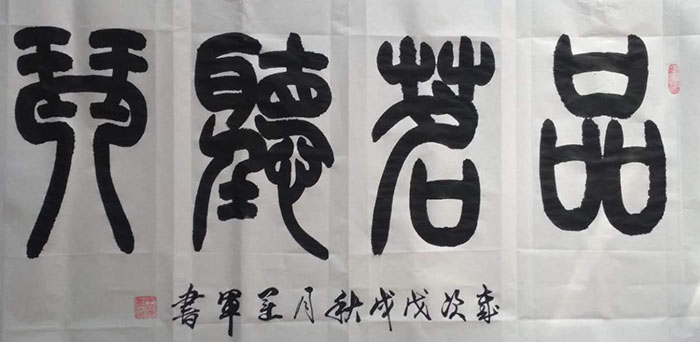 品茗聽琴
歲次戊戌秋月軍書